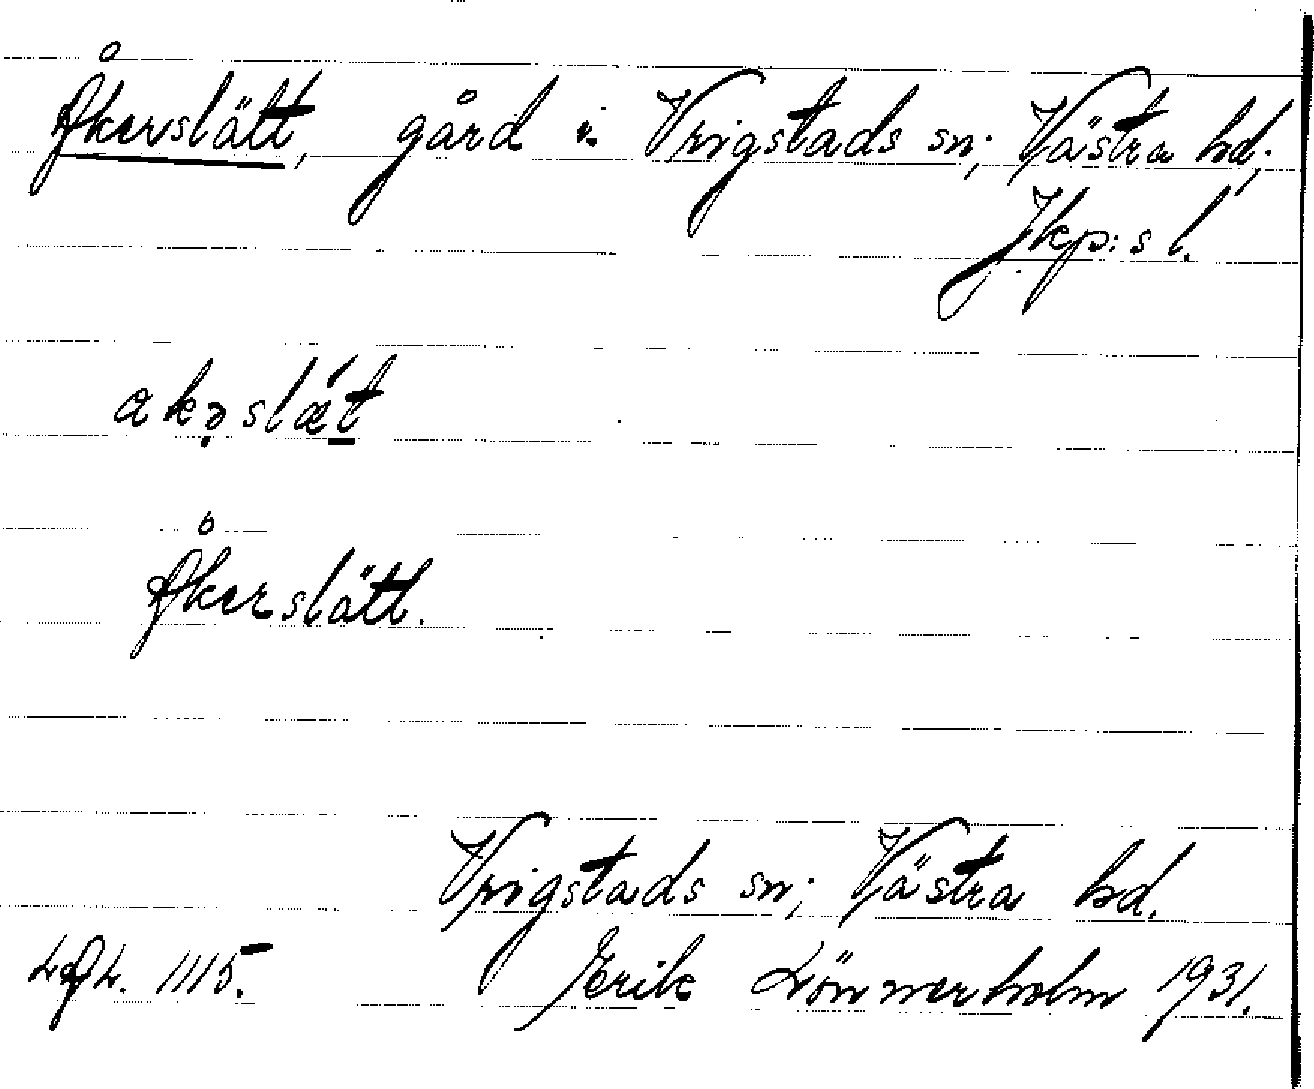 Åkerslätt, gård i Vrigstads sn; Västra hd;
Jkp:s l.
akə̣slǽt̲
Åkerslätt.
Vrigstads sn; Västra hd.
1115. Erik Lönnerholm 1931.